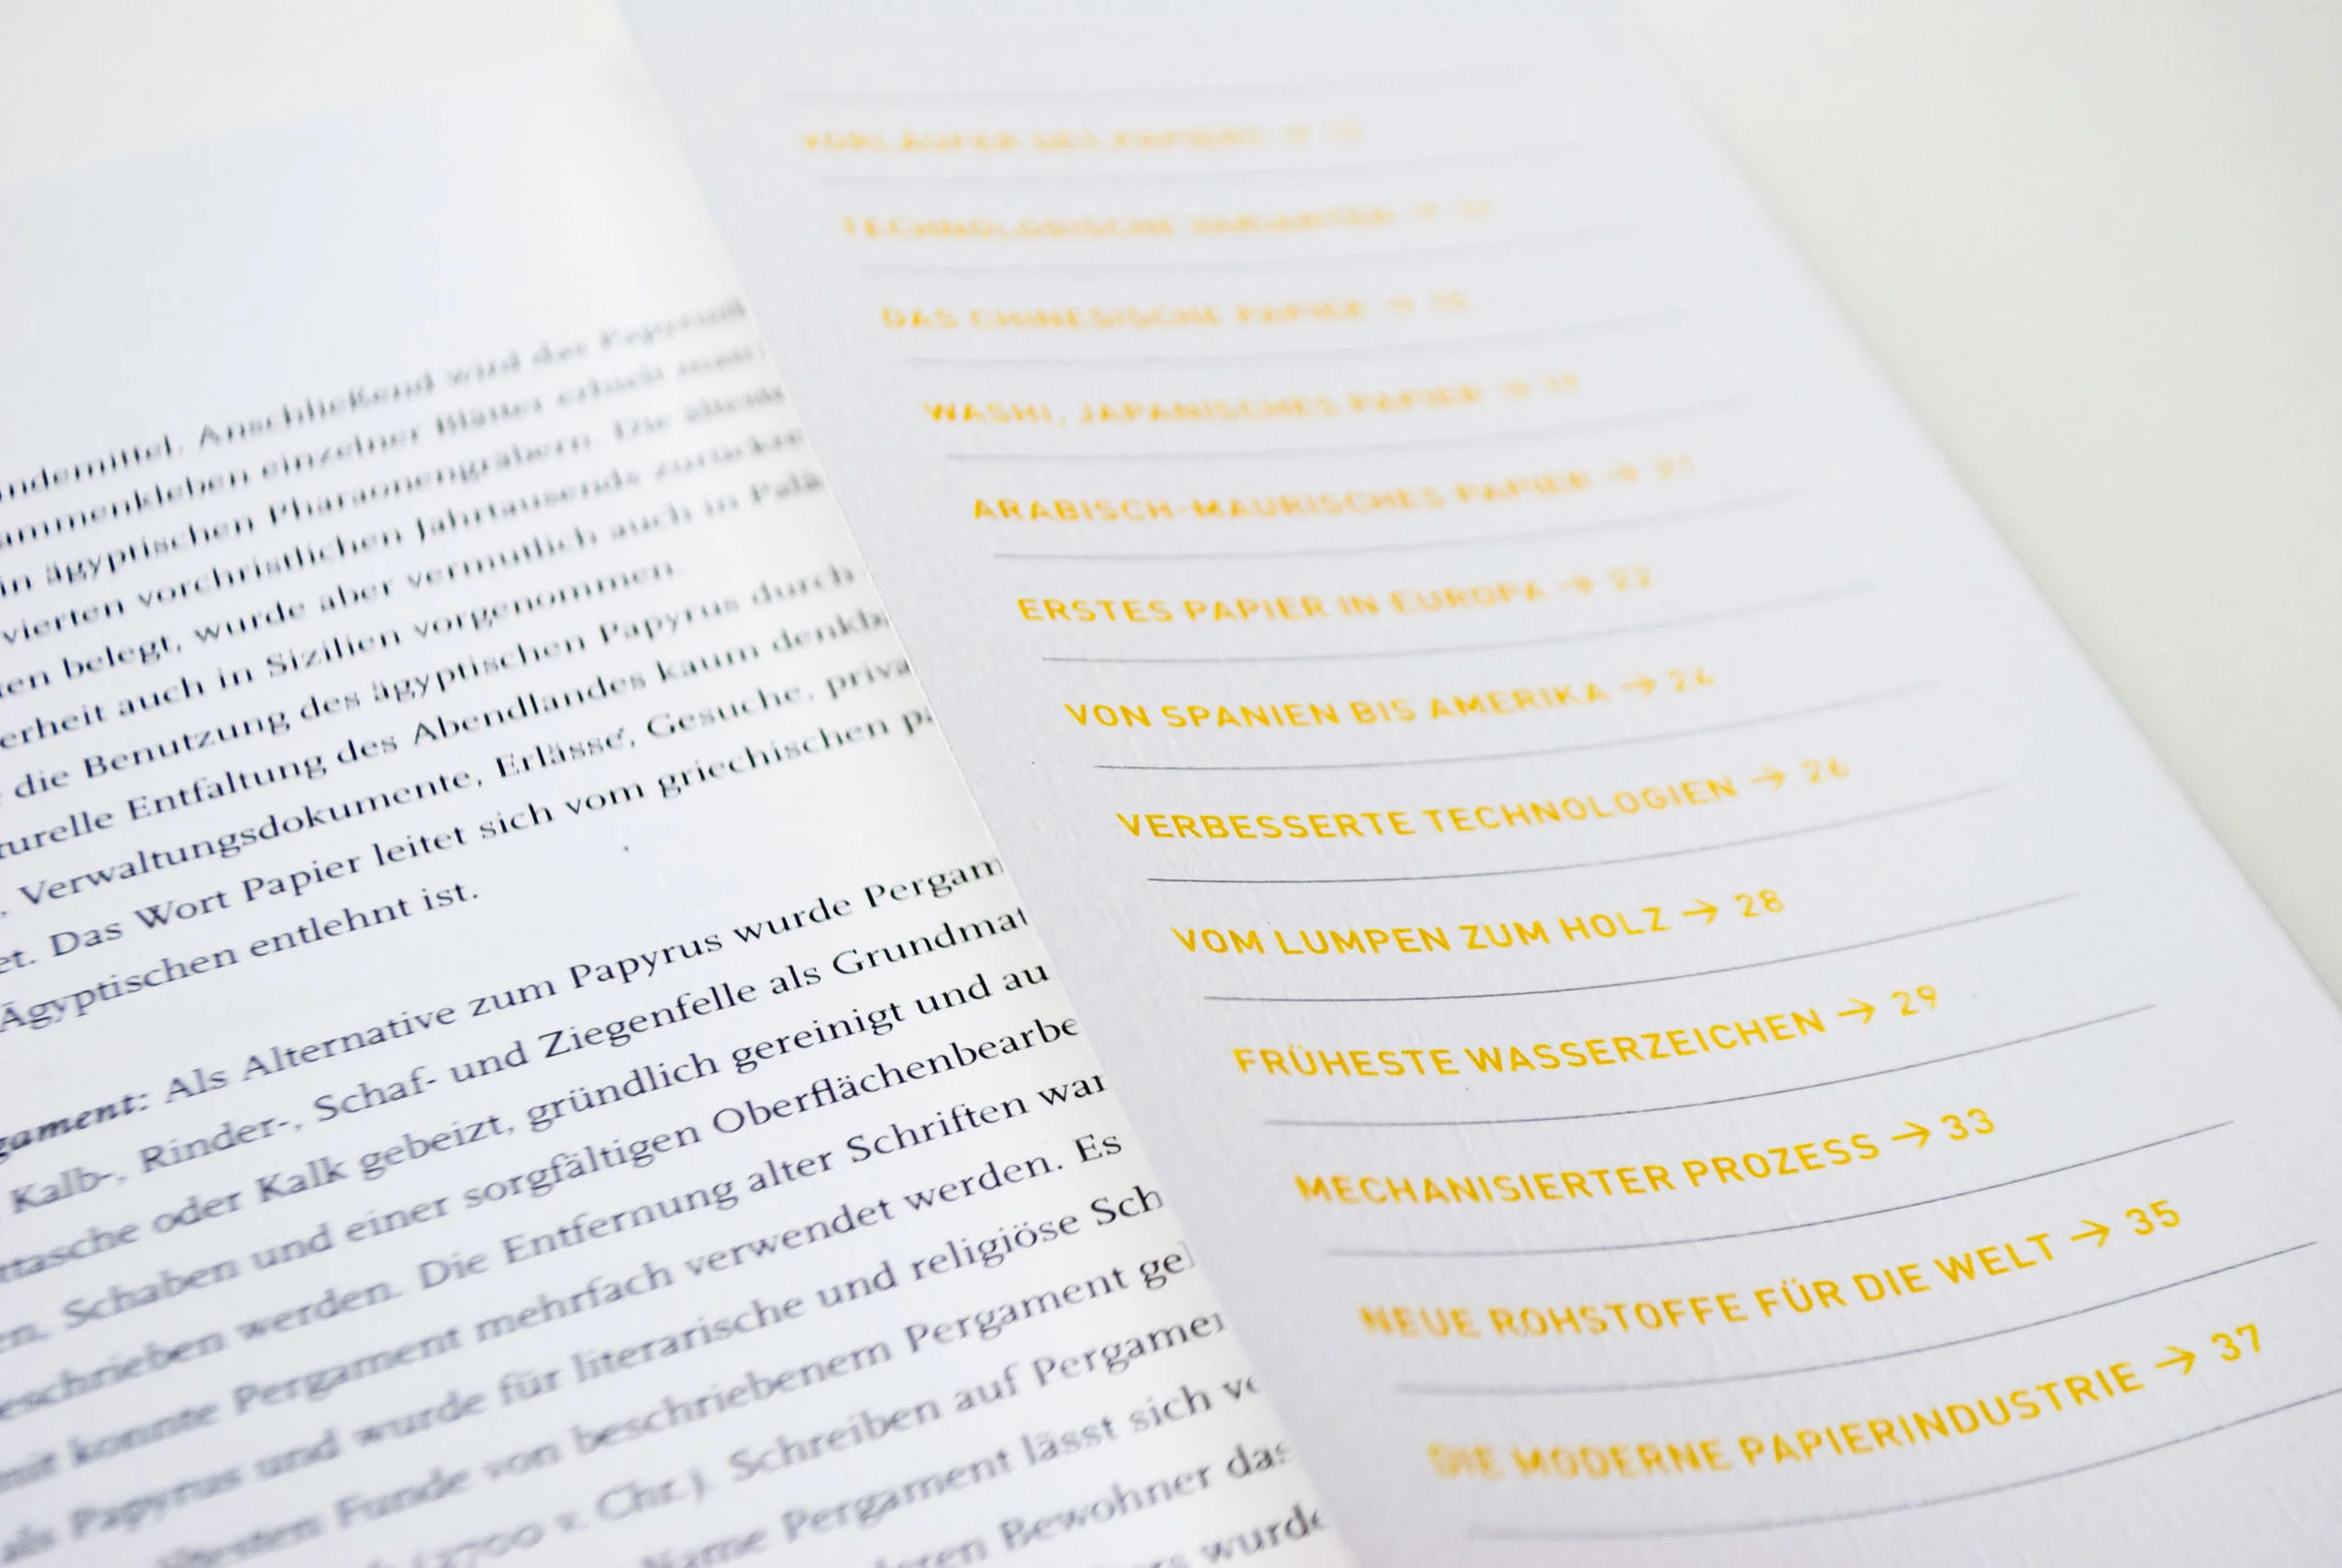 indemittel. Anschließend wird der Papyrus
ammenkleben einzelner Blätter erhielt man
in ägyptischen Pharaonengräbern. Die ältest
vierten vorchristlichen Jahrtausends zurück
en belegt, wurde aber vermutlich auch in Palä
erheit auch in Sizilien vorgenommen.
die Benutzung des ägyptischen Papyrus durch
turelle Entfaltung des Abendlandes kaum denkb
. Verwaltungsdokumente, Erlässe, Gesuche, priva
et. Das Wort Papier leitet sich vom griechischen pa
Ägyptischen entlehnt ist.
gament: Als Alternative zum Papyrus wurde Pergam
Kalb-, Rinder-, Schaf- und Ziegenfelle als Grundmat
ttasche oder Kalk gebeizt, gründlich gereinigt und au
en. Schaben und einer sorgfältigen Oberflächenbearbe
eschrieben werden. Die Entfernung alter Schriften war
mit konnte Pergament mehrfach verwendet werden. Es
als Papyrus und wurde für literarische und religiöse Sch
ältesten Funde von beschriebenem Pergament gel
(2700 v. Chr.). Schreiben auf Pergamen
Name Pergament lässt sich vo
deren Bewohner das
wurde
VORLÄUFER DES PAPIERS →
TECHNOLOGISCHE VARIANTEN →
DAS CHINESISCHE PAPIER →
WASHI, JAPANISCHES PAPIER →
ARABISCH-MAURISCHES PAPIER → 21
ERSTES PAPIER IN EUROPA → 22
VON SPANIEN BIS AMERIKA → 24
VERBESSERTE TECHNOLOGIEN → 26
VOM LUMPEN ZUM HOLZ → 28
FRÜHESTE WASSERZEICHEN → 29
MECHANISIERTER PROZESS → 33
NEUE ROHSTOFFE FÜR DIE WELT → 35
DIE MODERNE PAPIERINDUSTRIE → 37